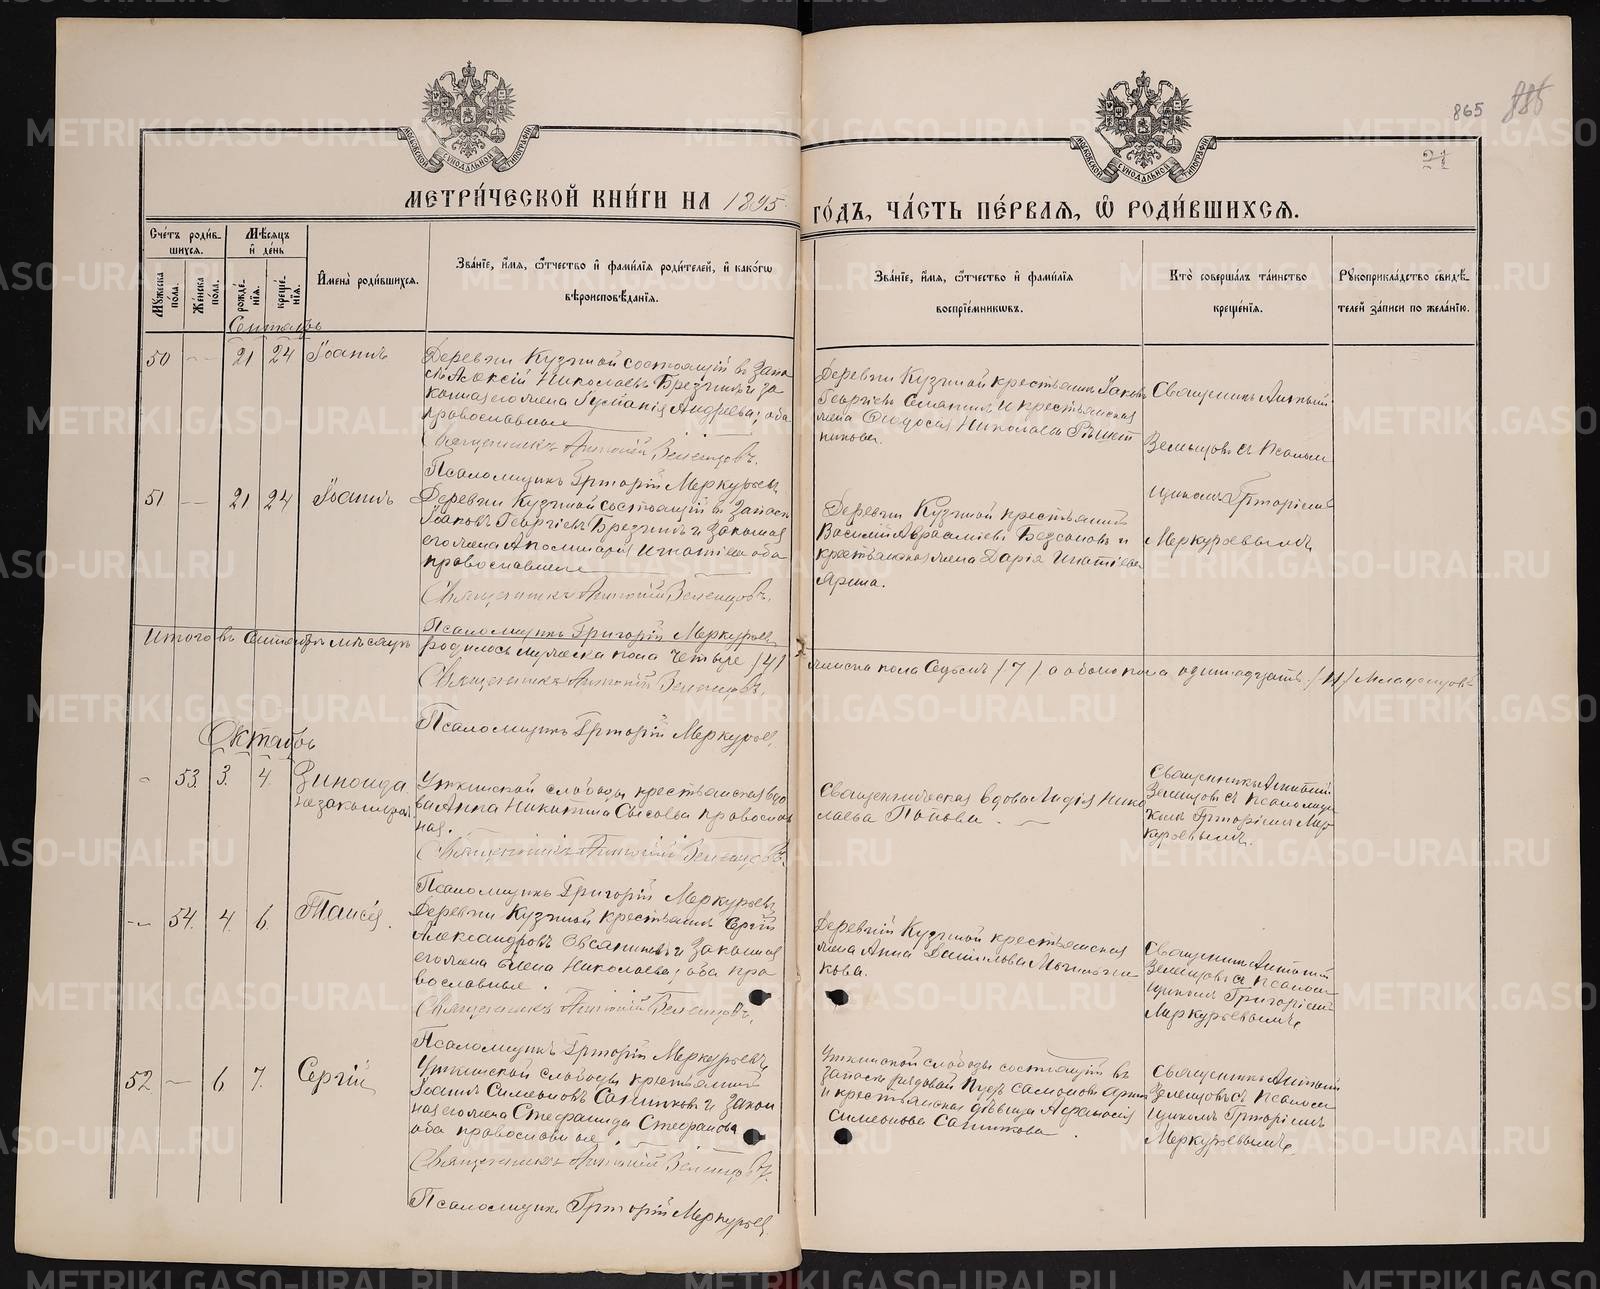 865
885
21
МЕТРИ́ЧЕСКОЙ КНИ́ГИ НА 1895
ГО́ДЪ, ЧА́СТЬ ПЕ́РВАЯ, Ѽ РОДИ́ВШИХСЯ.
Сче́тъ роди́в-
шихся.
Мѣ́сяцъ
и҆ де́нь
Му́жеска
по́ла.
Же́нска
по́ла.
рожде́-
нїя.
креще́-
нїя.
И҆мена̀ роди́вшихся.
Зва́нїе, и҆́мя, ѻ҆́тчество и҆ фамѝлїя роди́телей, и҆ како́гѡ
вѣроисповѣ́данїя.
Зва́нїе, и҆́мя, ѻ҆́тчество и҆ фамѝлїя
воспрїе́мниковъ.
Кто̀ соверша́лъ та́инство
креще́нїя.
Рукоприкла́дство свидѣ́-
телей за́писи по жела́нїю.
Сентябрь
50 — 21 24 Іоаннъ
Деревни Кузиной состоящій въ запа
сѣ Алексій Николаевъ Брезгинъ и за
конная его жена Андреева; оба
православные
Священникъ Антоній Зеленцовъ.
Псаломщикъ Григорій Меркурьевъ
Деревни Кузиной крестьянинъ Іаковъ
Георгіевъ и крестьянская
жена Ѳеодосія Николаева
Священникъ Антоній
Зеленцовъ съ Псалом
щикомъ Григоріемъ
Меркурьевымъ
51 — 21 24 Іоаннъ
Деревни Кузиной состоящій въ запасѣ
Іаковъ Георгіевъ Брезгинъ и законная
его жена Аполинарія Игнатіева оба
православные
Священникъ Антоній Зеленцовъ.
Псаломщикъ Григорій Меркурьевъ
Деревни Кузиной крестьянинъ
Василій Аврааміевъ Безсоновъ и
крестьянская жена Дарія Игнатіева
Ярина.
Итого въ Сентябрѣ мѣсяцѣ родилось мужеска пола четыре /4/ женска пола седьмь /7/ а обоего пола одиннадцать /11/ младенцовъ
Священникъ Антоній Зеленцовъ.
Псаломщикъ Григорій Меркурьевъ
Октябрь
- 53. 3. 4. Зинаида
незаконнорож.
Уткинской слободы крестьянская вдо
ва Анна Никитина Сысоева православ
ная.
Священникъ Антоній Зеленцовъ.
Псаломщикъ Григорій Меркурьевъ
Священническая вдова Лидія Нико
лаева Попова.
Священникъ Антоній
Зеленцовъ съ псаломщи
комъ Григоріемъ Мер
курьевымъ.
— 54. 4. 6. Таисія.
Деревни Кузиной крестьянинъ Сергій
Александровъ Овсянинъ и законная
его жена Елена Николаева; оба пра
вославные.
Священникъ Антоній Зеленцовъ.
Псаломщикъ Григорій Меркурьевъ
Деревни Кузиной крестьянская
жена Анна Данилова
кова.
Священникъ Антоній
Зеленцовъ съ Псалом
щикомъ Григоріемъ
Меркурьевымъ
52 — 6 7. Сергій
Уткинской слободы крестьянинъ
Іоаннъ Симеоновъ Санниковъ и закон
ная его жена Стефанида Стефанова
оба православные.
Священникъ Антоній Зеленцовъ.
Псаломщикъ Григорій Меркурьевъ
Уткинской слободы состоящій въ
запасѣ рядовой
и крестьянская дѣвица Аѳанасія
Симеонова Санникова.
Священникъ Антоній
Зеленцовъ съ Псалом
щикомъ Григоріемъ
Меркурьевымъ
METRIKI.GASO-URAL.RU